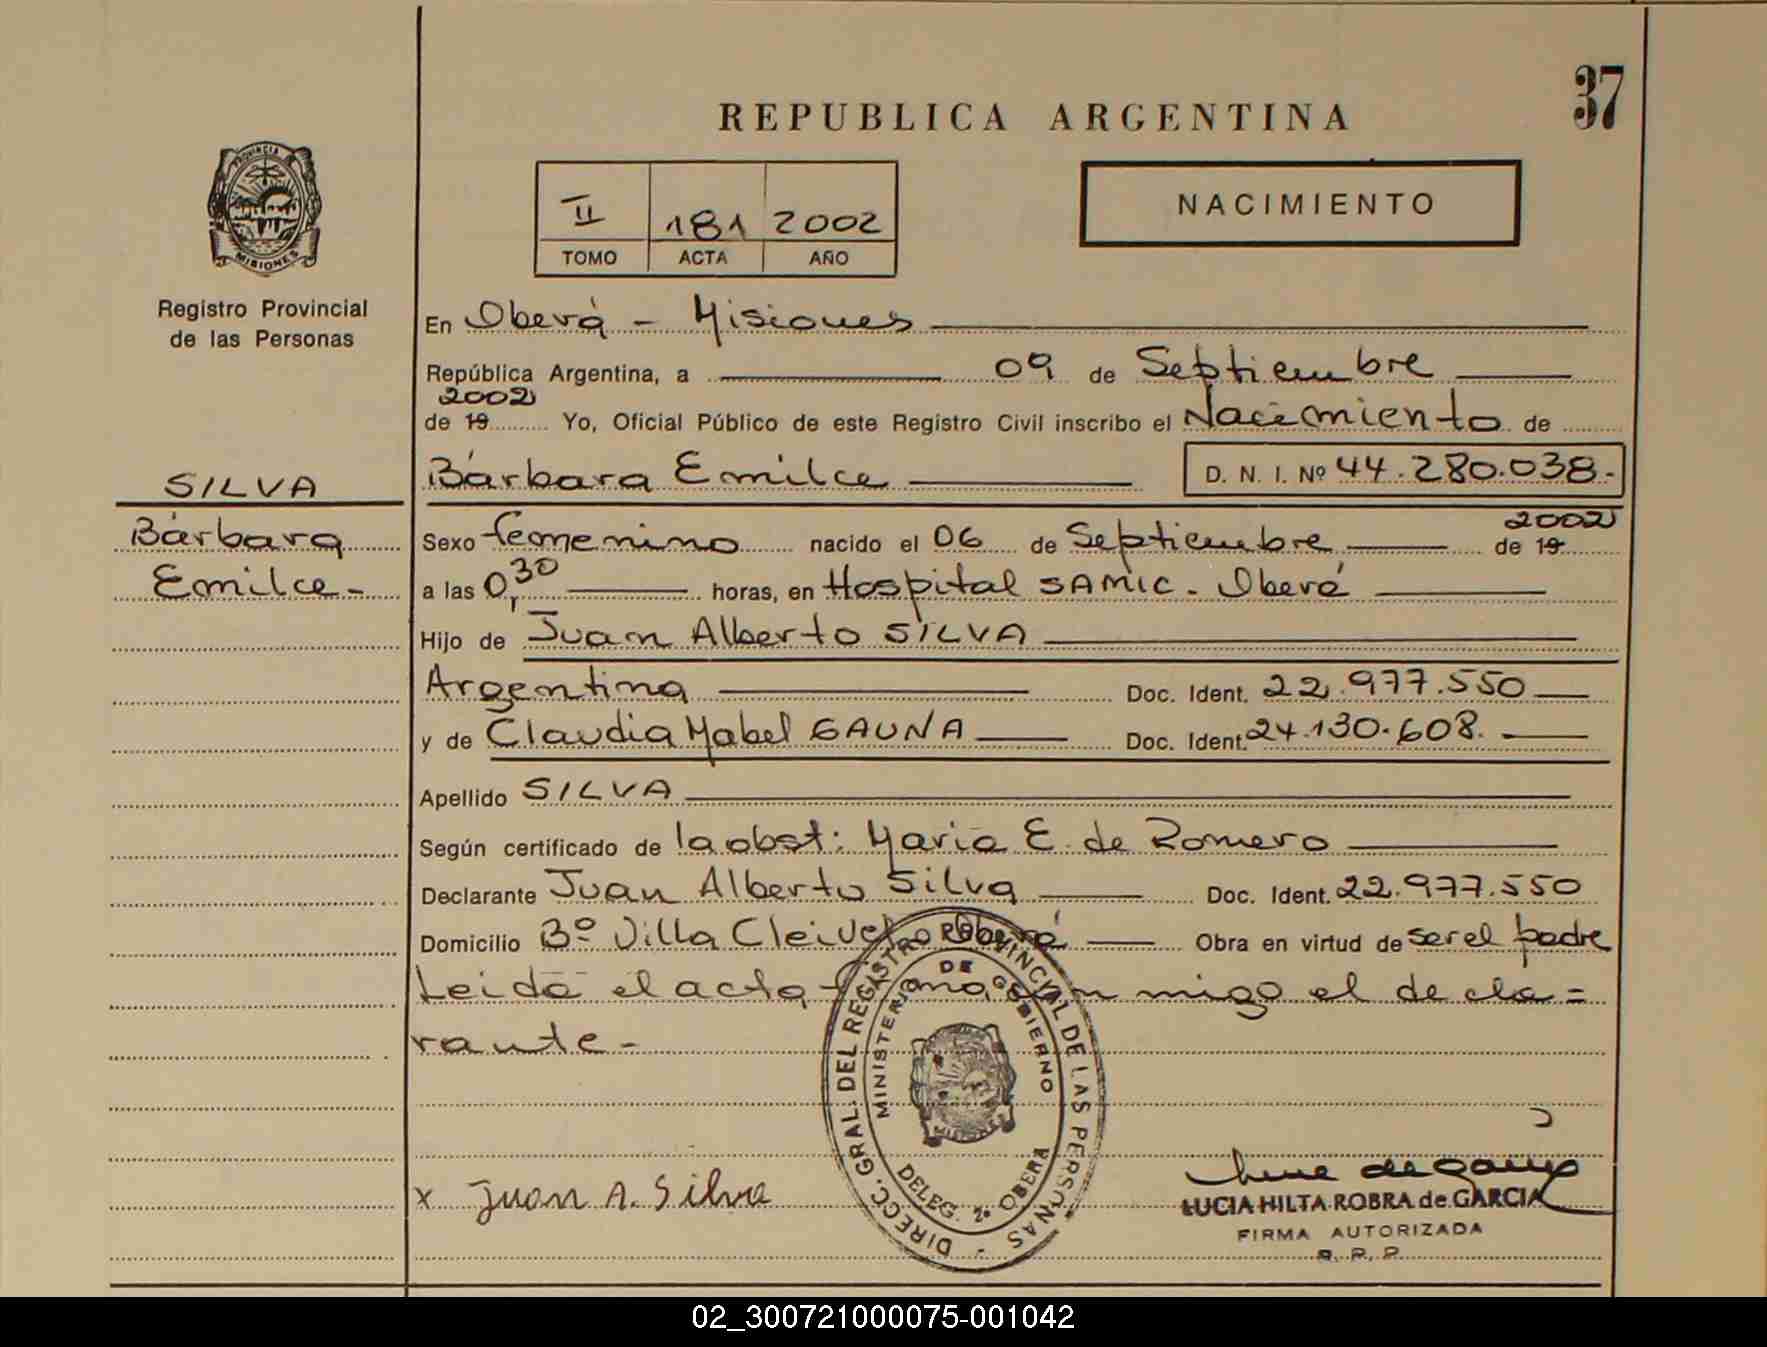 37
REPUBLICA ARGENTINA
PROVINCIA
MISIONES
II 181 2002
TOMO ACTA AÑO
NACIMIENTO
Registro Provincial
de las Personas
En Oberá - Misiones
República Argentina, a 09 de Septiembre
2002
de 19 Yo, Oficial Público de este Registro Civil inscribo el Nacimiento de
SILVA
Bárbara Emilce D. N. I. Nº 44.280.038.-
Bárbara
Emilce -
2002
Sexo femenino nacido el 06 de Septiembre de 19
a las 0,30 horas, en Hospital SAMIC - Oberá
Hijo de Juan Alberto SILVA
Argentina Doc. Ident. 22.977.550
y de Claudia Mabel GAUNA Doc. Ident. 24.130.608.
Apellido SILVA
Según certificado de la obst: María E. de Romero
Declarante Juan Alberto Silva Doc. Ident. 22.977.550
Domicilio Bº Villa Oberá Obra en virtud de ser el padre
Leida el acta firma conmigo el decla=
rante -
DIRECC. GRAL. DEL REGISTRO PROVINCIAL DE LAS PERSONAS -
MINISTERIO DE GOBIERNO
MISIONES
DELEG. 2º OBERA
x Juan A. Silva
LUCIA HILTA ROBRA de GARCIA
FIRMA AUTORIZADA
R. P. P.
02_300721000075-001042